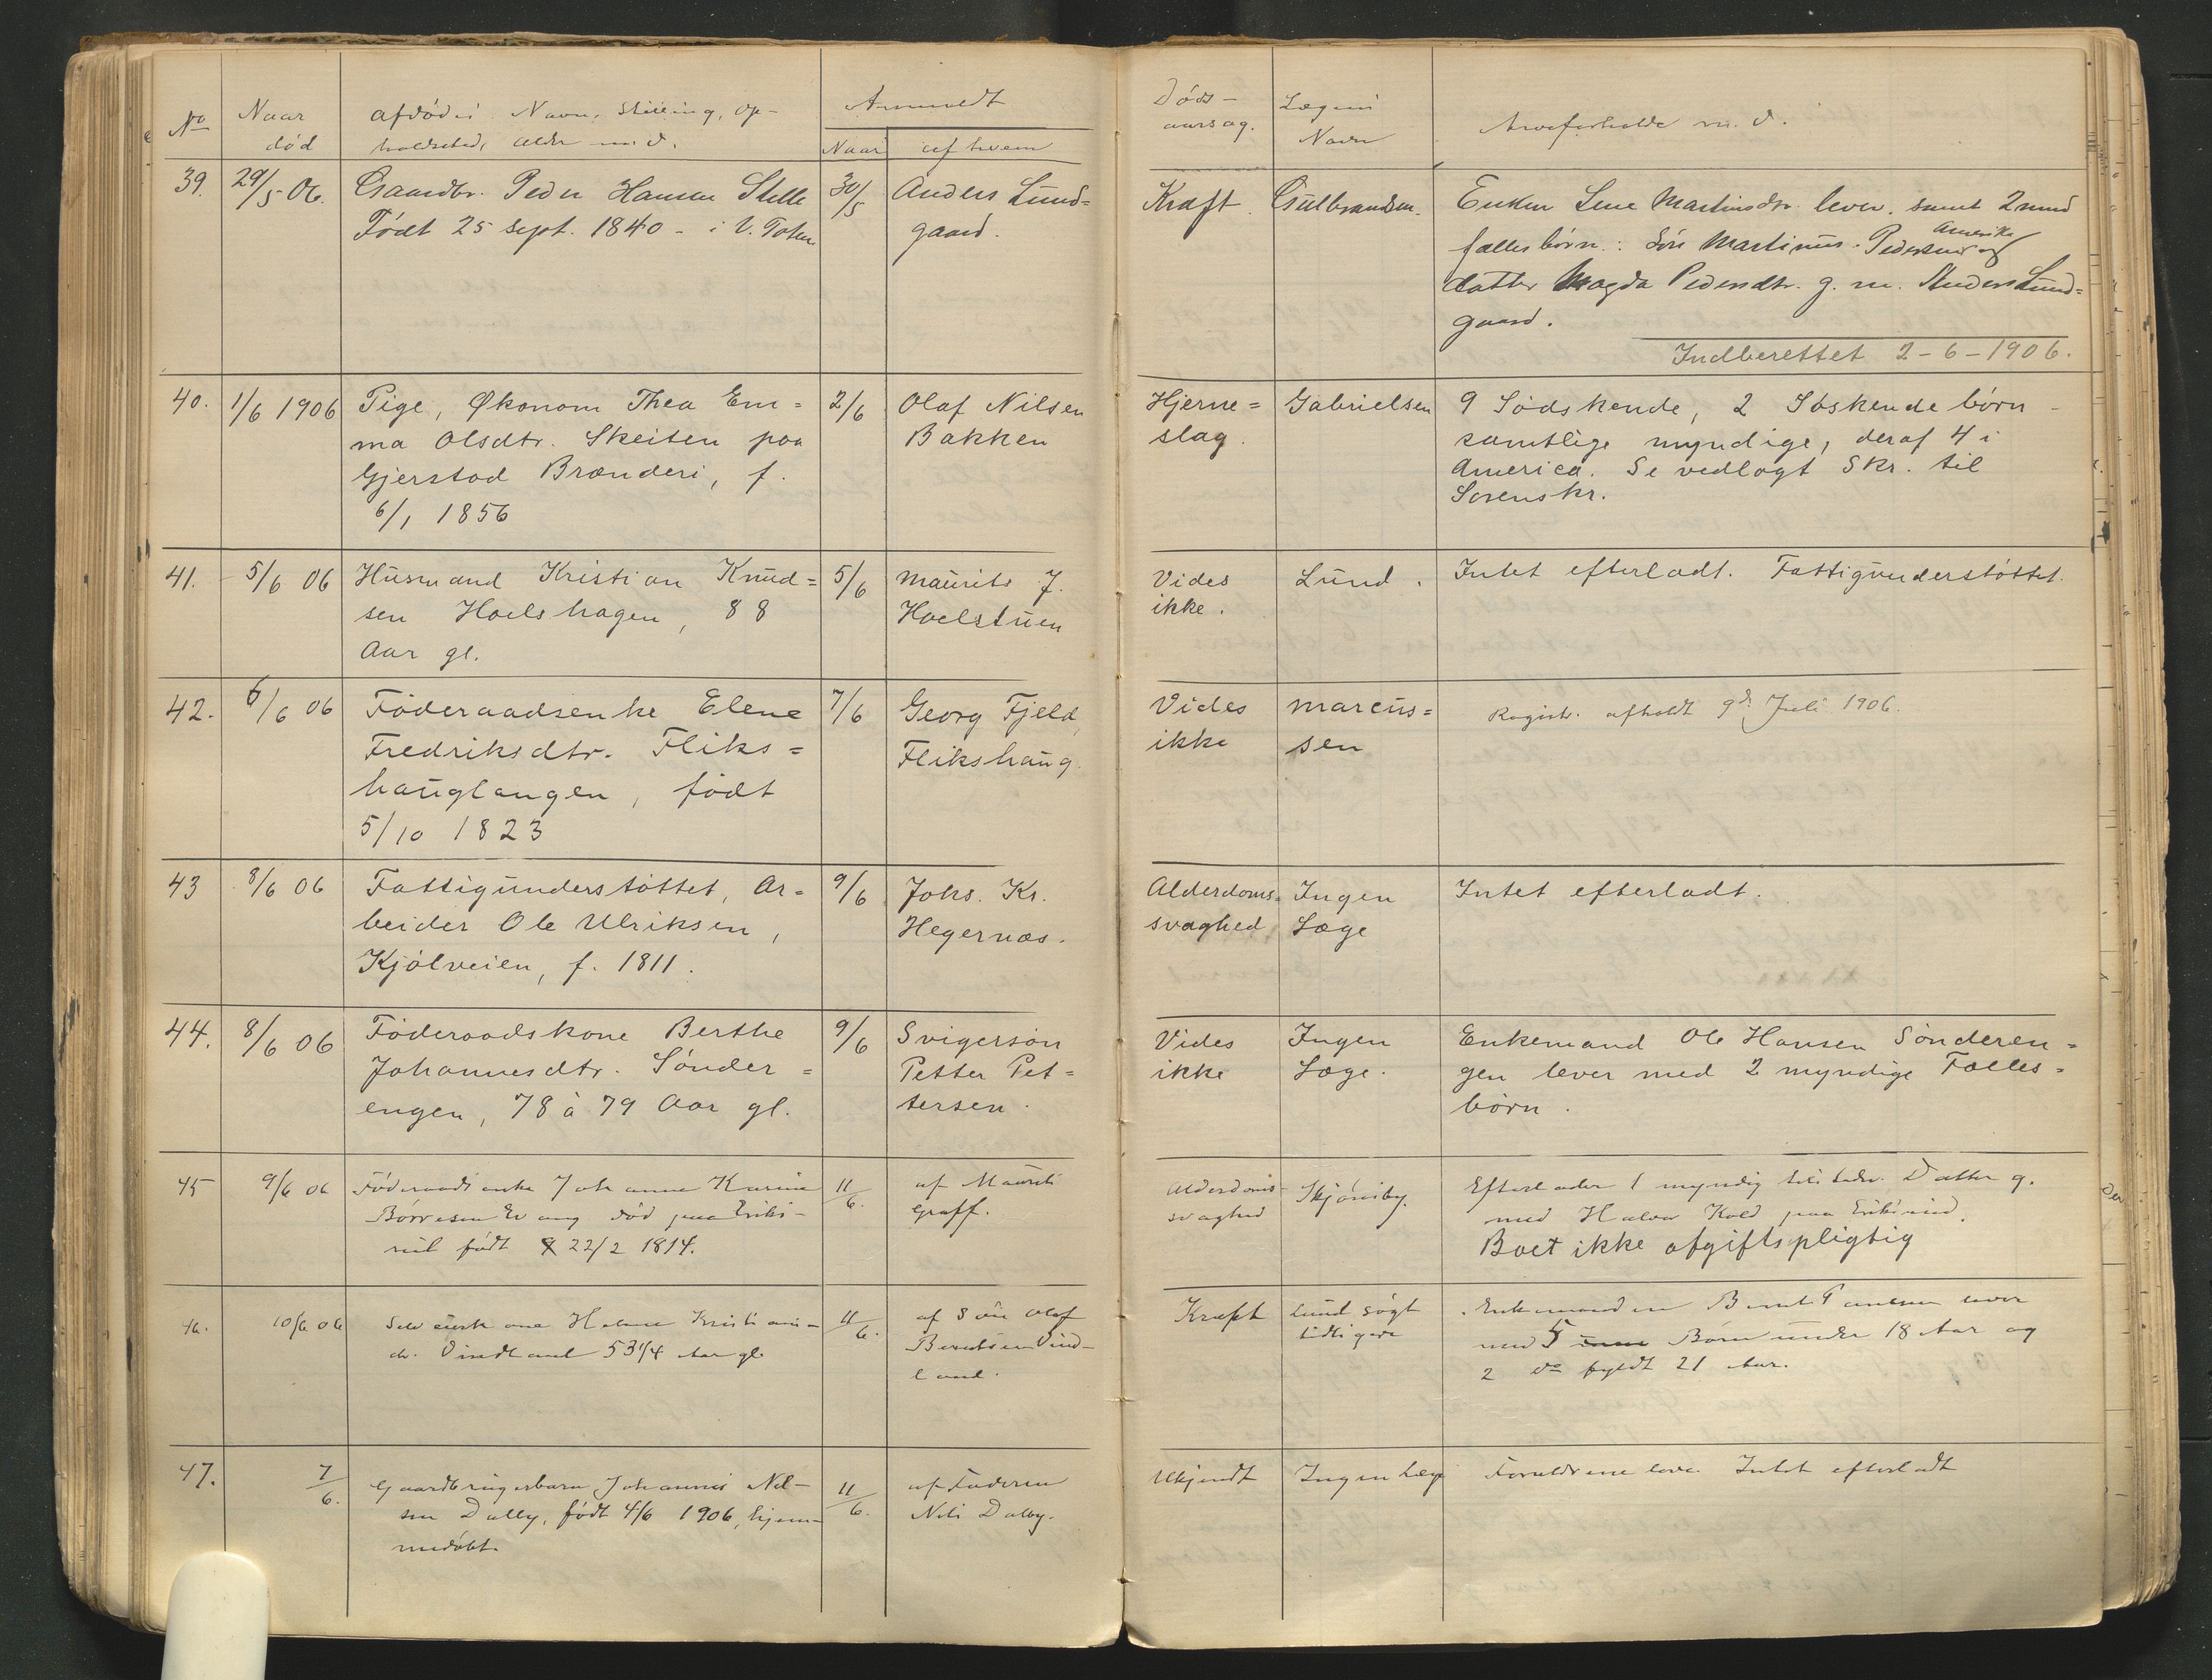 No
Naar
død
Afdødes Navn, Stilling, Op-
holdssted, Alder m.v.
Anmeldt
Naar
af hvem
Døds-
aarsag.
Lægens
Navn
Arveforholde m.v.
39.
29/5-06.
Gaardbr. Peder Hansen Stelle
Født 25 sept. 1840 - i V. Toten
30/5
Anders Lund=
gaard.
Kræft
Gulbrandsen.
Enken Lene Martinsdr. lever. samt 2 mynd
fællesbörn: Søn Martinus Pedersen Amerika og
datter Magda Pedersdtr. g. m. Anders Lund=
gaard.
Indberettet 2-6-1906.
40.
1/6 1906
Pige, Økonom Thea Em=
ma Olsdtr. Skeiten paa
Gjerstad Brænderi, f.
6/1 1856
2/6
Olaf Nilsen
Bakken
Hjerne=
slag.
Gabrielsen
9 Södskende, 2 Söskendebörn -
samtlige myndige, deraf 4 i
America. Se vedlagt Skr. til
Sorenskr.
41.
5/6 06
Husmand Kristian Knud=
sen Hoelshagen, 88
Aar gl.
5/6
Maurits J.
Hoelstuen
Vides
ikke.
Lund.
Intet efterladt. Fattigunderstöttet.
42.
6/6 06
Föderaadsenke Elene
Fredriksdtr. Fliks=
hauglangen, född
5/10 1823
7/6
Georg Fjeld,
Flikshaug.
Vides
ikke
Marcus=
sen
Registr. afholdt 9de Juli 1906.
43
8/6 06
Fattigunderstöttet, Ar=
beider Ole Ulriksen,
Kjölveien, f. 1811.
9/6
Johs. Kr.
Hegernæs.
Alderdoms=
svaghed
Ingen
Læge
Intet efterladt.
44.
8/6 06
Föderaadskone Berthe
Johannesdtr. Sönder=
engen, 78 à 79 Aar gl.
9/6
Svigersön
Petter Pet=
tersen.
Vides
ikke
Ingen
Læge.
Enkemand Ole Hansen Sönderen=
gen lever med 2 myndige Fælles=
börn.
45
9/6 06
Föderaadsenke Johanne Karine
Börresen Evang död paa Eriks-
rud født 22/2 1814.
11/6.
af Maurits
Graff.
Alderdoms-
svaghed
Skjönsby.
Efterlader 1 myndig Datter g.
med Halvor Kold paa Eriksrud.
Boet ikke afgiftspligtig
46.
10/6 06
Selveierkone Helene Kristians-
dr. Vindland 53 1/4 Aar gl.
11/6.
af Sön Olaf
Berntsen Vind-
land.
Kræft
Lund søgt
tidligere
Enkemanden Bernt Paulsen lever
med 5 Börn under 18 Aar og
2 do fyldt 21 Aar.
47.
7/6.
Gaardbrugerbarn Johannes Nil-
sen Dalby, født 4/6 1906, hjem-
medöbt.
11/6.
af Faderen
Nils Dalby.
Ukjendt
Ingen Læge
Forældrene lever. Intet efterladt